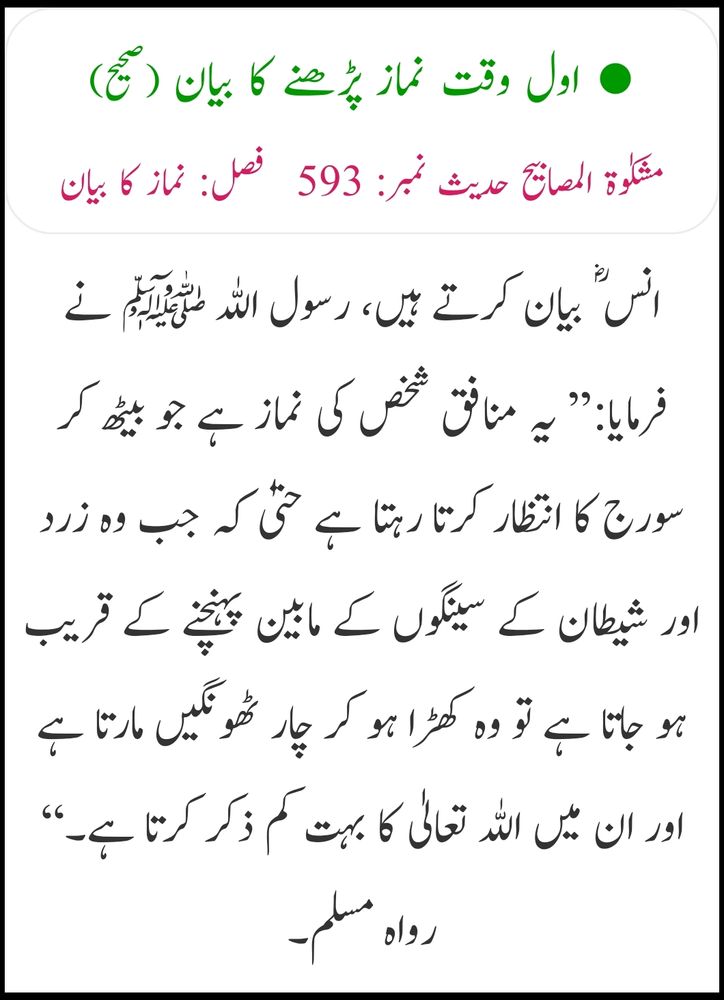 ● اول وقت نماز پڑھنے کا بیان (صحیح)
مشکٰوۃ المصابیح حدیث نمبر: 593 فصل: نماز کا بیان
انس ؓ بیان کرتے ہیں، رسول اللہ ﷺ نے
فرمایا:’’ یہ منافق شخص کی نماز ہے جو بیٹھ کر
سورج کا انتظار کرتا رہتا ہے حتیٰ کہ جب وہ زرد
اور شیطان کے سینگوں کے مابین پہنچنے کے قریب
ہو جاتا ہے تو وہ کھڑا ہو کر چار ٹھونگیں مارتا ہے
اور ان میں اللہ تعالیٰ کا بہت کم ذکر کرتا ہے۔‘‘
رواہ مسلم۔